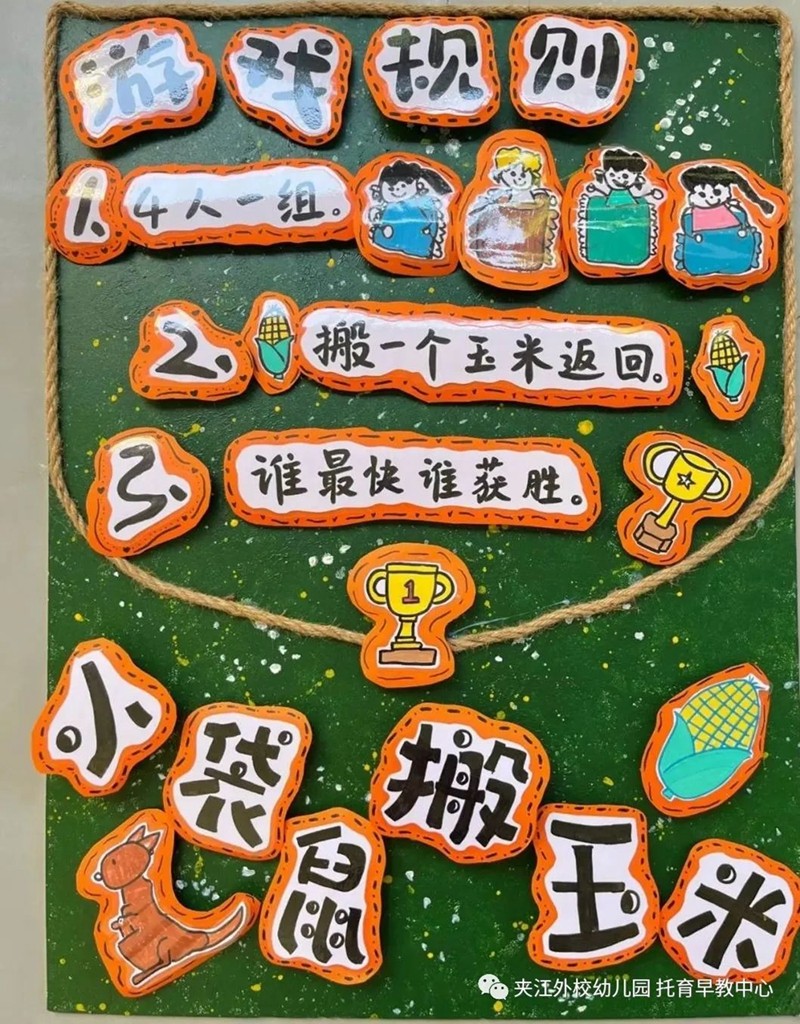 游戏规则
1. 4人一组。
2. 搬一个玉米返回。
3. 谁最快谁获胜。
1
小袋鼠搬玉米
夹江外校幼儿园 托育早教中心